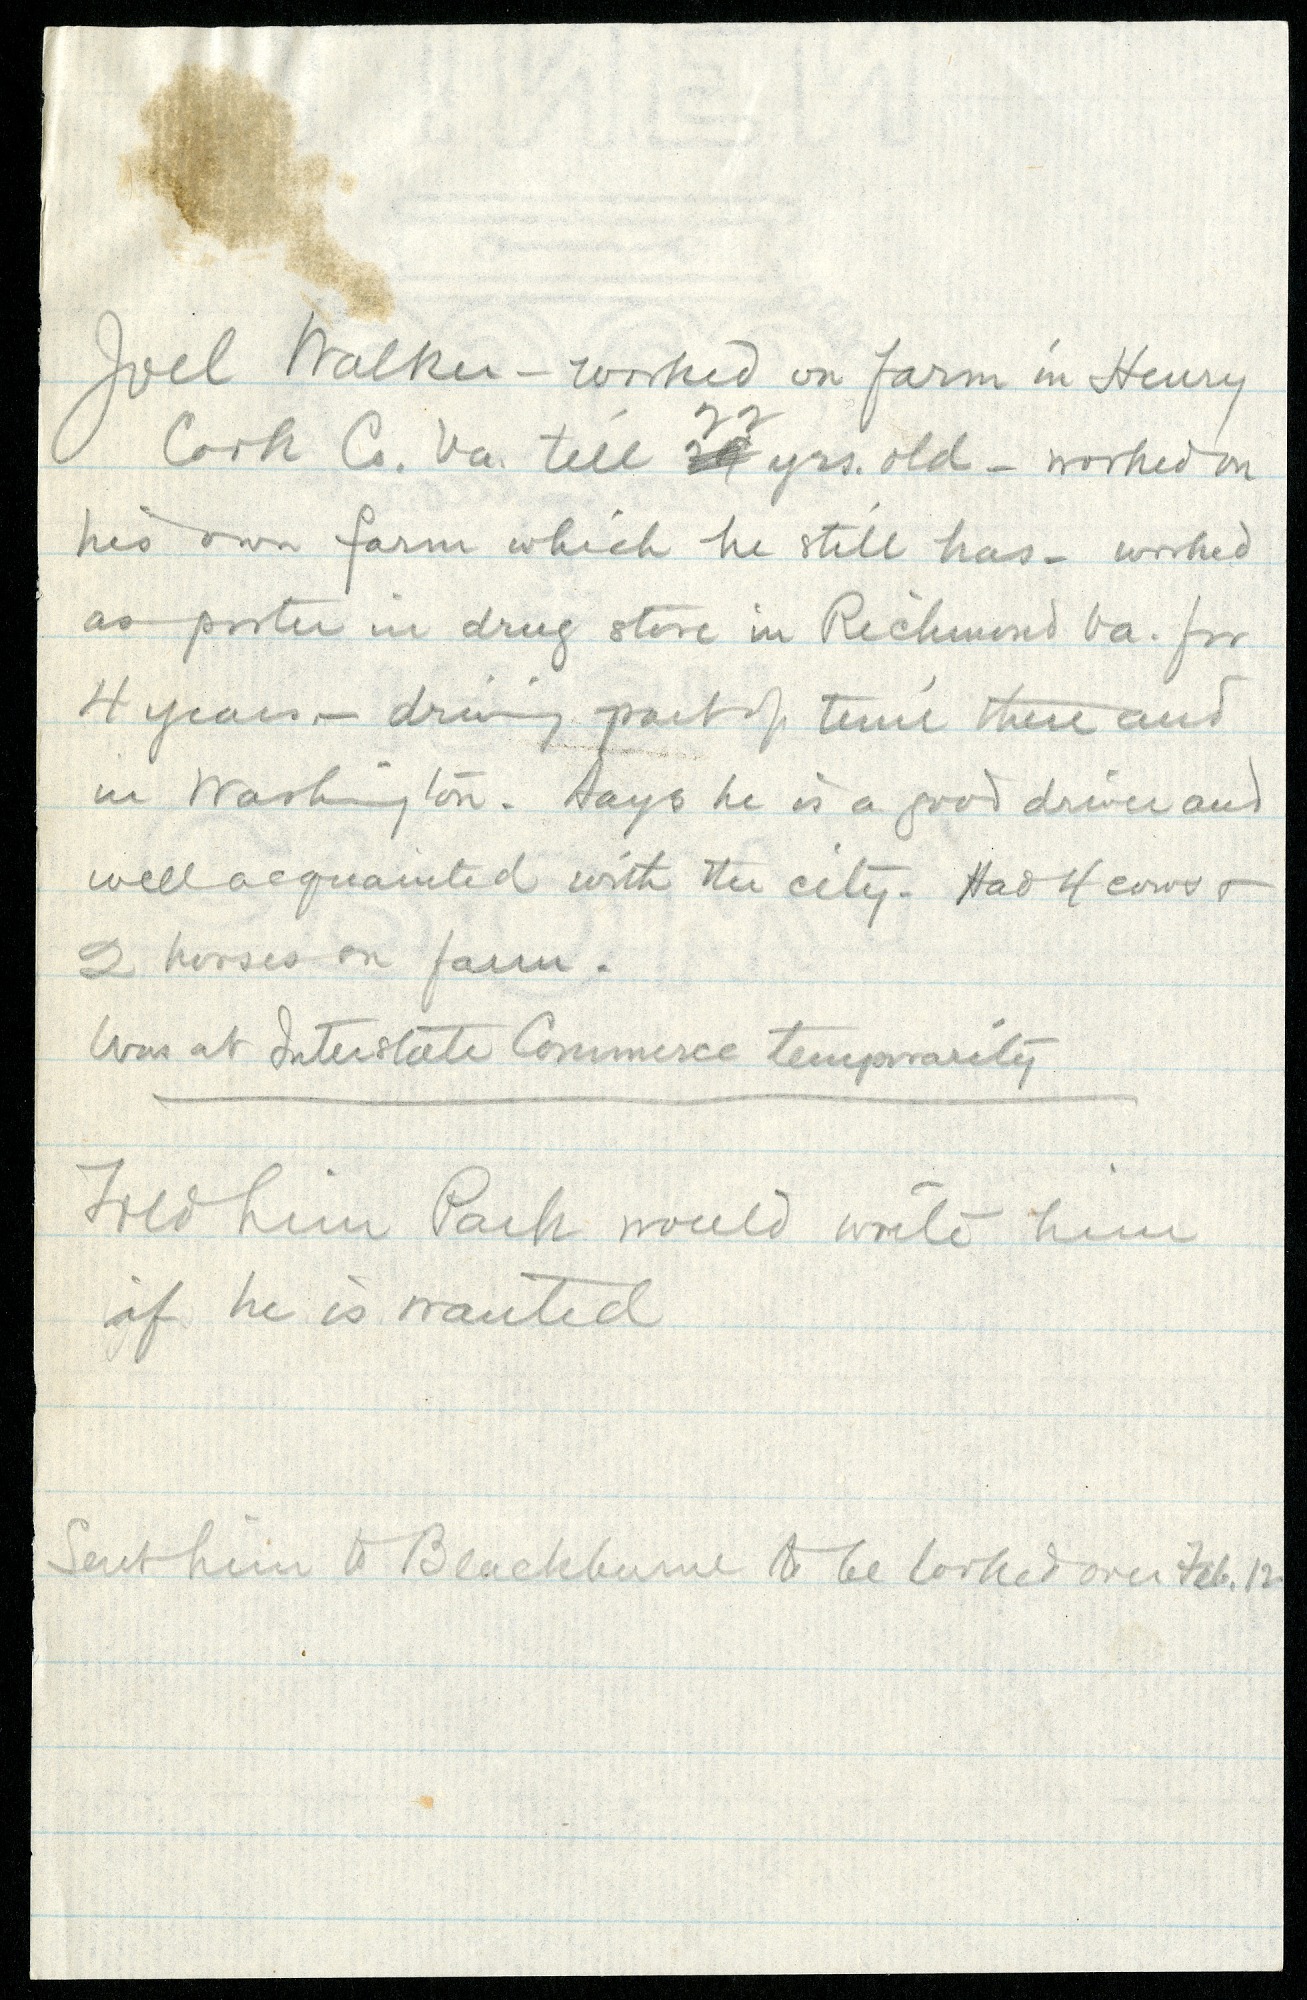 Joel Walker – worked on farm in Henry
Cook Co. Va. till 22 yrs. old – worked on
his own farm which he still has – worked
as porter in drug store in Richmond Va. for
4 years – driving part of time there and
in Washington. Says he is a good driver and
well acquainted with the city. Had 4 cows &
2 horses on farm.
Was at Interstate Commerce temporarily
Told him Park would write him
if he is wanted
Sent him to Blackburne to be looked over Feb. 12